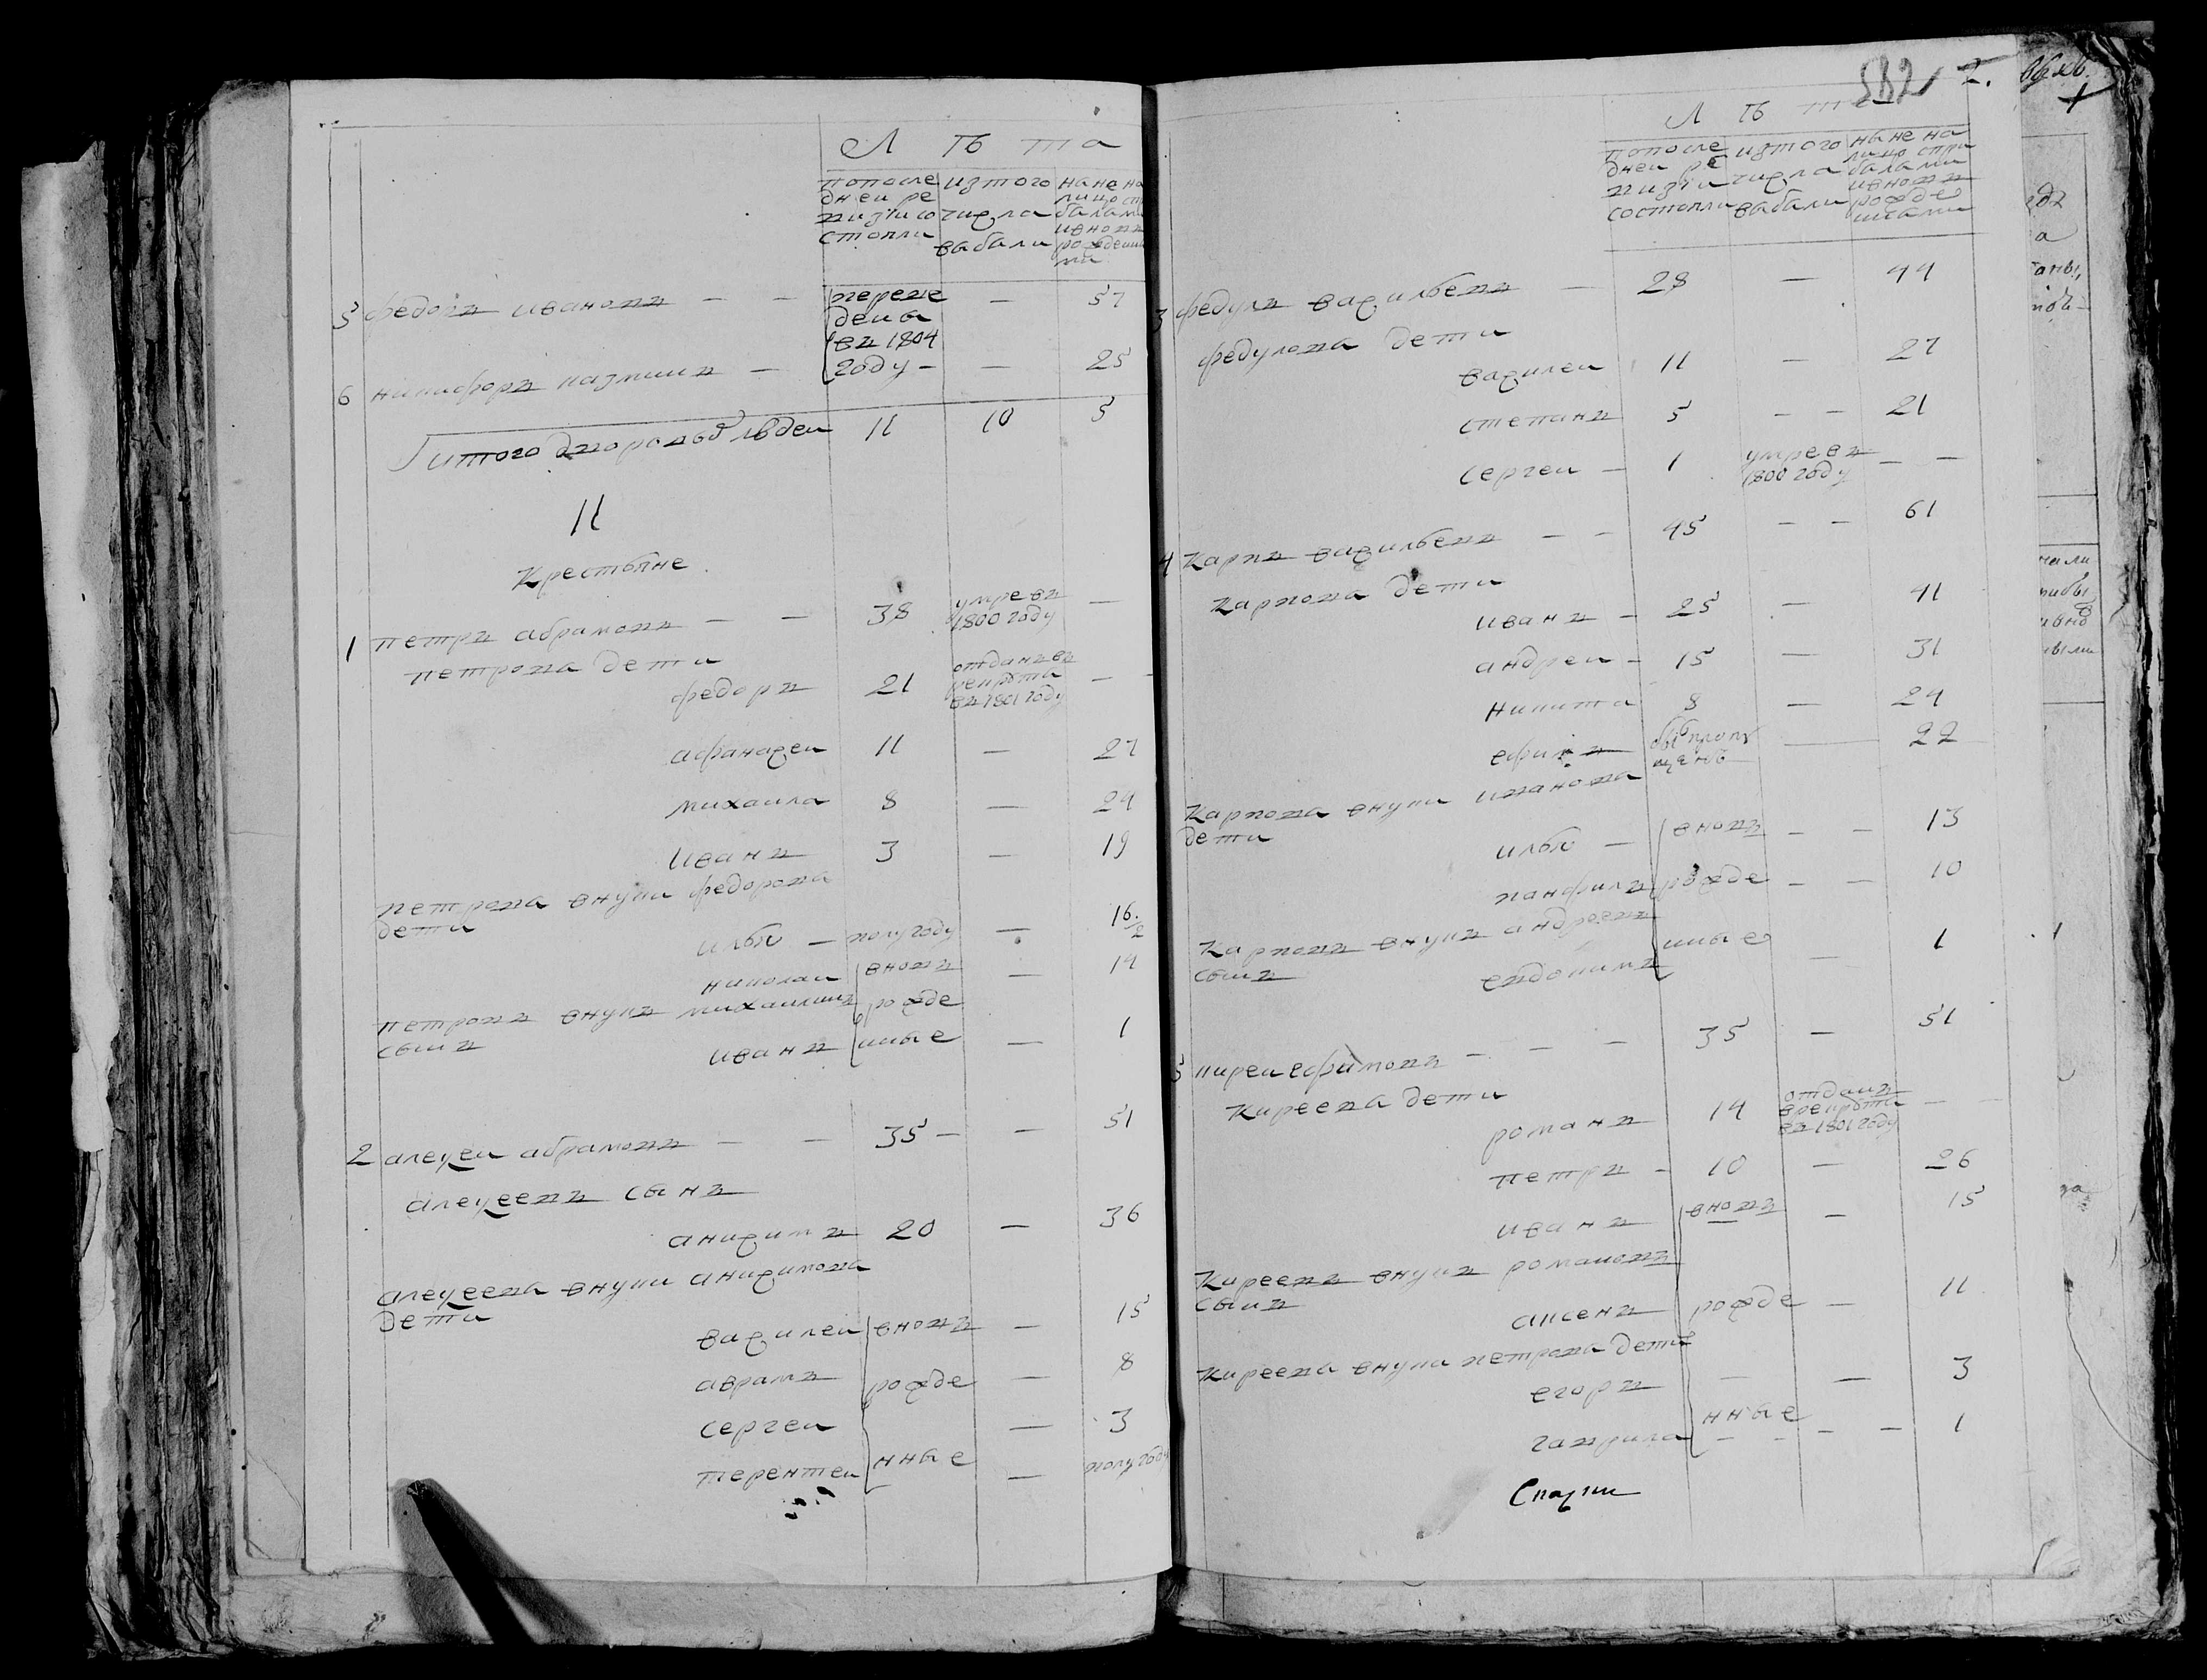 Л ѣ та
по после
дней ре
визiи со
стояли
из того
числа
выбыли
ны не на
лицо сп
балами
и вновъ
рожденны
ми
5 федоръ ивановъ — — пе­реве — 57
дены
въ 1804
6 никифоръ казминъ — году — — 25
итого дворовыхъ людей 11 10 5
11
Крестьяне
1 петръ абрамовъ — — 38 умре въ —
1800 году
петрова дети
федоръ 21 отданъ въ — —
рекруты
въ 1801 году
афанасеи 11 — 27
михаила 8 — 24
иванъ 3 — 19
петрова внуки федорова
дети
илья — полугоду — 16 1/2
николаи вновъ — 14
петровъ внукъ михаилинъ рожде
сынъ
иванъ нные — 1
2 алексеи абрамовъ — — 35 — — 51
алексеевъ сынъ
анисимъ 20 — 36
алексеева внуки анисимова
дети
василеи вновъ — 15
аврамъ рожде — 8
сергеи — 3
терентеи нные — полугоду
582 2.
Л ѣ та
по после
дней ре
визiи
состояли
из того
числа
выбыли
ны не на
лицо спри
балами
и вновъ
рожде
нными
3 федулъ васильевъ — 28 — 44
федулова дети
василеи 11 — 27
степанъ 5 — — 21
сергеи — 1 умре въ — —
1800 году
4 Карпъ васильевъ — — 45 — — 61
Карпова дети
иванъ — 25 — 41
андреи — 15 — 31
никита 8 — 24
ефимъ былъ пропу — 22
щенъ
Карпова внуки иванова
дети
илья — вновъ — — 13
панфилъ рожде — — 10
Карповъ внукъ андреевъ
сынъ
евдокимъ нные — 1
5 киреи ефимовъ — — — 35 — 51
Киреева дети
романъ 14 отданъ — —
в рекруты
въ 1801 году
петръ — 10 — 26
иванъ вновъ — 15
Киреевъ внукъ романовъ
сынъ
аксенъ рожде — 11
Киреева внуки петрова дети
егоръ — — 3
гаврила нные — — 1